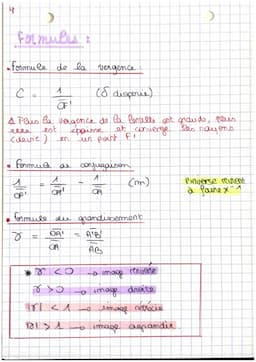 Formules :
• Formule de la vergence :
C = 1 / OF' (δ dioptrie)
⚠ Plus la vergence de la lentille est grande, plus
elle est épaisse et converge les rayons
en un point F'
• Formule de conjugaison
1 / OF' = 1 / OA' - 1 / OA (m)
l'inverse revient
à faire x⁻¹
• Formule du grandissement
γ = OA' / OA = A'B' / AB
• γ < 0 → image renversée
γ > 0 → image droite
|γ| < 1 → image rétrécie
|γ| > 1 → image agrandie